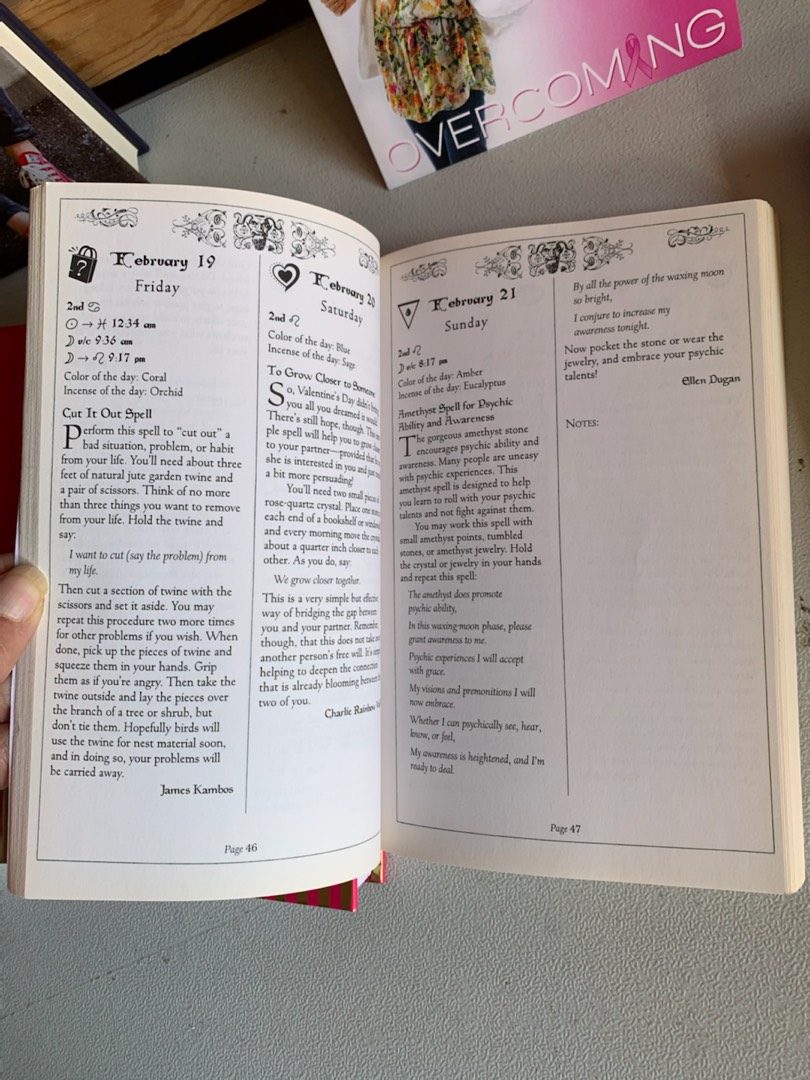 OVERCOMING
February 19
Friday
2nd ♋
☉ → ♓ 12:34 am
☽ v/c 9:36 am
☽ → ♌ 9:17 pm
Color of the day: Coral
Incense of the day: Orchid
Cut It Out Spell
Perform this spell to “cut out” a
bad situation, problem, or habit
from your life. You’ll need about three
feet of natural jute garden twine and
a pair of scissors. Think of no more
than three things you want to remove
from your life. Hold the twine and
say:
I want to cut (say the problem) from
my life.
Then cut a section of twine with the
scissors and set it aside. You may
repeat this procedure two more times
for other problems if you wish. When
done, pick up the pieces of twine and
squeeze them in your hands. Grip
them as if you’re angry. Then take the
twine outside and lay the pieces over
the branch of a tree or shrub, but
don’t tie them. Hopefully birds will
use the twine for nest material soon,
and in doing so, your problems will
be carried away.
James Kambos
February 20
Saturday
2nd ♌
Color of the day: Blue
Incense of the day: Sage
To Grow Closer to Someone
So, Valentine’s Day didn’t
you all you dreamed it would
There’s still hope, though. This
ple spell will help you to grow
to your partner—provided that
she is interested in you and just
a bit more persuading!
You’ll need two small
rose-quartz crystal. Place one
each end of a bookshelf or
and every morning move the
about a quarter inch closer to each
other. As you do, say:
We grow closer together.
This is a very simple but effective
way of bridging the gap between
you and your partner. Remember
though, that this does not take
another person’s free will. It’s
helping to deepen the connection
that is already blooming between
two of you.
Charlie Rainbow
Page 46
February 21
Sunday
2nd ♌
☽ v/c 8:17 pm
Color of the day: Amber
Incense of the day: Eucalyptus
Amethyst Spell for Psychic
Ability and Awareness
The gorgeous amethyst stone
encourages psychic ability and
awareness. Many people are uneasy
with psychic experiences. This
amethyst spell is designed to help
you learn to roll with your psychic
talents and not fight against them.
You may work this spell with
small amethyst points, tumbled
stones, or amethyst jewelry. Hold
the crystal or jewelry in your hands
and repeat this spell:
The amethyst does promote
psychic ability,
In this waxing-moon phase, please
grant awareness to me.
Psychic experiences I will accept
with grace.
My visions and premonitions I will
now embrace.
Whether I can psychically see, hear,
know, or feel,
My awareness is heightened, and I’m
ready to deal.
By all the power of the waxing moon
so bright,
I conjure to increase my
awareness tonight.
Now pocket the stone or wear the
jewelry, and embrace your psychic
talents!
Ellen Dugan
NOTES:
Page 47